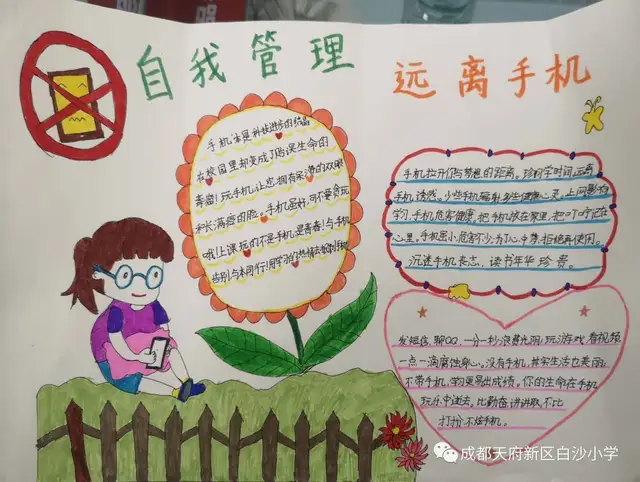 自我管理
远离手机
手机本是科技进步的结晶
在校园里却变成了贻误生命的
毒瘤!玩手机让您拥有呆滞的双眼
和长满痘的脸。手机虽好,可不要贪玩
哦!上课玩的不是手机是青春!与手机
告别,与书同行!用学习的热情去
手机拉开你与梦想的距离。珍惜学时间,远离
手机诱惑。少些手机辐射,多些健康心灵。上网影响
学习,手机危害健康,把手机放在家里,把叮咛记在
心里,手机虽小危害不少,为了心中梦拒绝再使用。
沉迷手机丧志,读书年华珍贵。
发短信,聊QQ,一分一秒浪费光阴;玩游戏看视频
一点一滴腐蚀身心。没有手机,其实生活也美丽
不带手机,学习更易出成绩。你的生命在手机
玩乐中逝去。比勤奋讲进取,不比
打扮不炫手机。
成都天府新区白沙小学